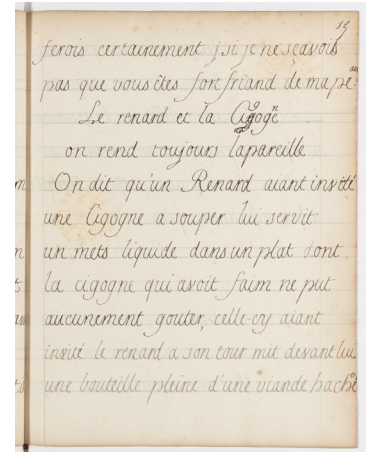 19
ferois certainement si je ne sçavois
pas que vous êtes fort friand de ma peau
Le renard et la Cigogne
on rend toujours la pareille
On dit qu'un Renard aiant invité
une Cigogne a souper lui servit
un mets liquide dans un plat dont
la cigogne qui avoit faim ne put
aucunement gouter, celle-cy aiant
invité le renard a son tour mit devant lui
une bouteille pleine d'une viande haché